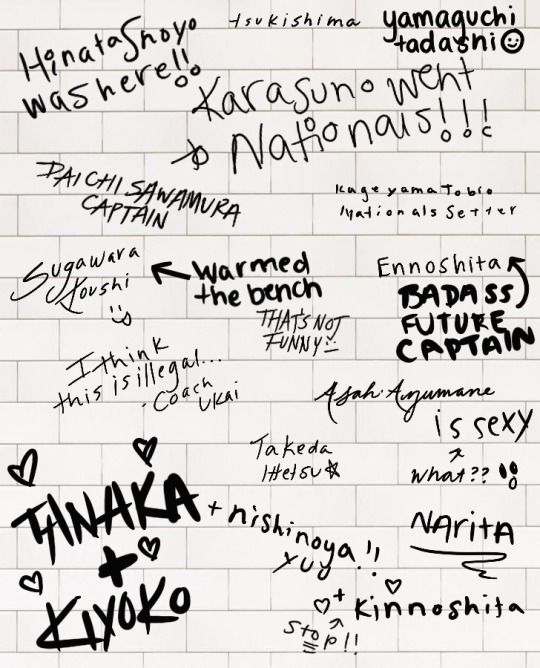 Hinata Shoyo
was here!!
tsukishima
yamaguchi
tadashi
Karasuno went
to Nationals!!!
DAICHI SAWAMURA
CAPTAIN
Kageyama Tobio
Nationals Setter
Sugawara
Koushi
:)
warmed
the bench
THAT'S NOT
FUNNY
Ennoshita
BADASS
FUTURE
CAPTAIN
I think
this is illegal...
- Coach
Ukai
Asahi Azumane
is sexy
what??
Takeda
Ittetsu
TANAKA
+
KIYOKO
+ nishinoya
yuu!!
NARITA
+ kinnoshita
stop!!